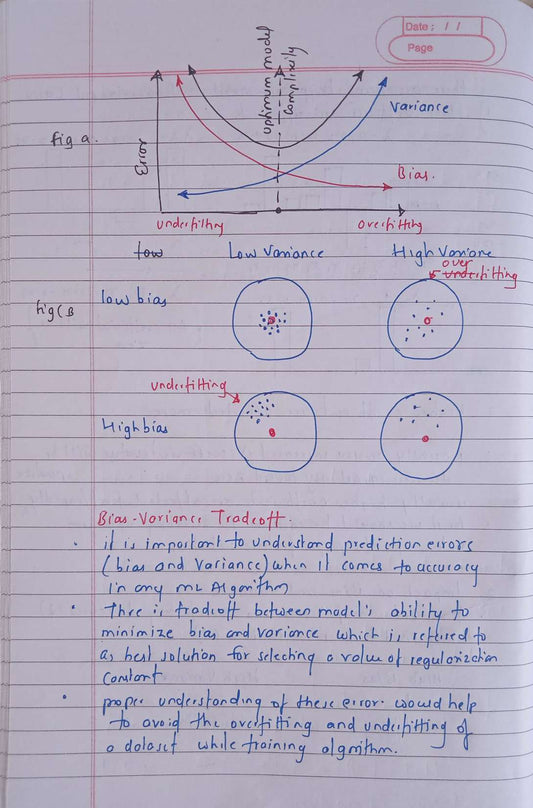 Date : / /
Page
optimum model
complixity
Variance
fig a.
Error
Bias.
underfitting
overfitting
low
Low Variance
High Varience
over
underfitting
low bias
fig(B
underfitting
High bias
Bias-Variance Tradeoff.
it is important to understand prediction errors
(bias and Variance) when it comes to accuracy
in any ML Algorithm
Thre is tradeoff between model's ability to
minimize bias and variance which is refered to
as best solution for selecting a value of regularization
constant
proper understanding of these error would help
to avoid the overfitting and underfitting of
a dataset while training algorithm.